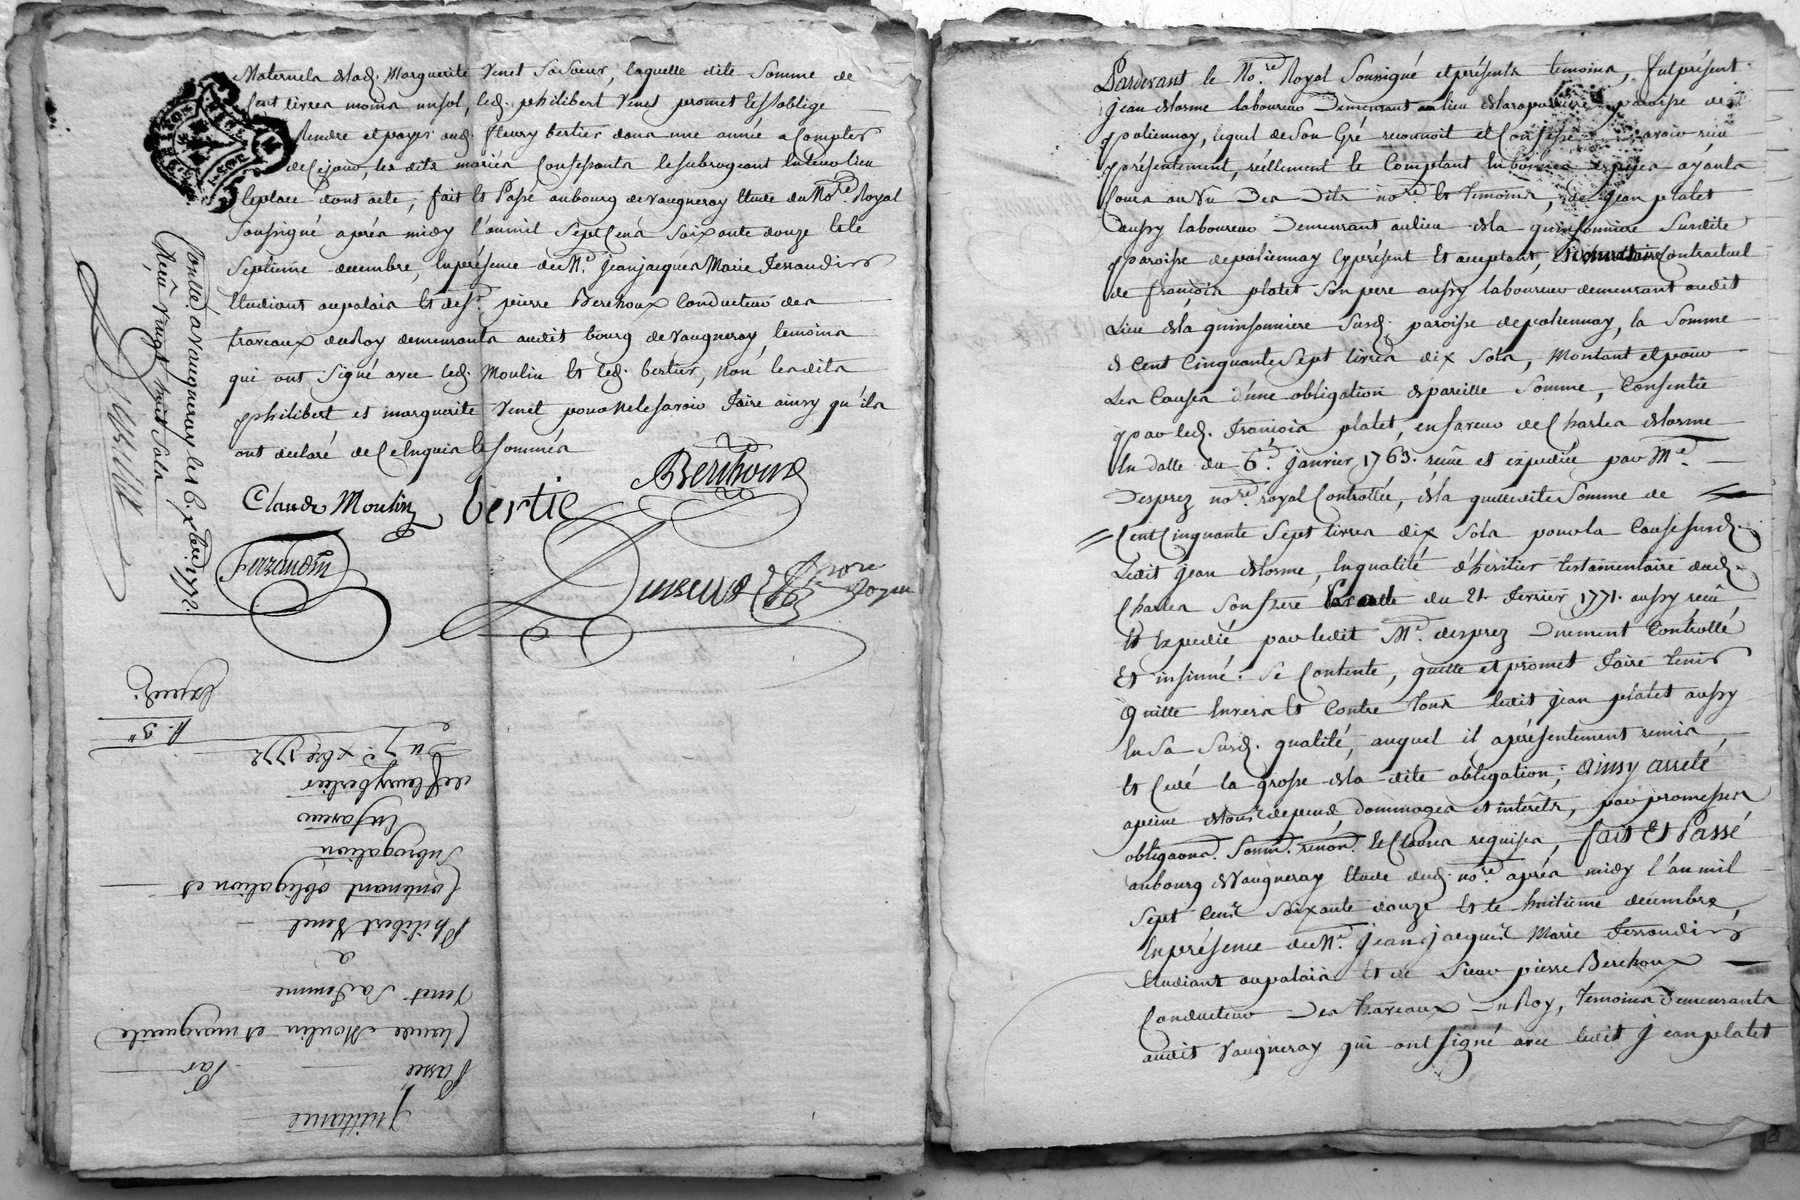 Maternels de lad. Marguerite Venet Sa Soeur, laquelle dite Somme de
Cent livres moins un sol, led. philibert Venet promet et s'oblige
Rendre et payer aud. fleury bertier dans une année a Compter
de Cejour, les dits mariés Consentants le subrogeant en leur lieu
et place dont acte, fait et Passé aubourg de vaugneray Etude du No.re Royal
Soussigné aprés midy l'an mil Sept Cens Soixante douze et le
Septieme decembre, En présence de Me. Jean jacques Marie ferrandin
Etudiant au palais et de Sr. pierre Berchoux Conducteur des
travaux du Roy demeurants audit bourg de Vaugneray, temoins
qui ont Signé avec led. Moulin et led. bertier, non lesdits
philibert et marguerite Venet pour ne le savoir faire ainsy qu'ils
ont declaré de Ce Enquis et Sommés
Claude Moulin bertie Berthoux
Ferrandin
no.re Royal
Controllé a Vaugneray le 18 xbre 1772
Reçû Vingt huit Sols
Expedié
Du 7e. xbre 1772
de fleury bertier
En faveur
Subrogation
Contenant obligation et
Philibert Venet
a
Venet Sa femme
Claude Moulin et marguerite
Par
Passée
Quittance
Pardevant le No.re Royal Soussigné et présents temoins, fut présent
Jean delorme laboureur Demeurant au lieu de paroisse de
poliennay, lequel de Son Gré reconnoit et Confesse avoir reçu
présentement, réellement et Comptant En bonnes especes ayants
Cours au Vu Des Dits no.re et temoins, de Jean platet
aussy laboureur Demeurant au lieu de la quinsonniere Susdite
paroisse de poliennay Cy présent et acceptant, Donataire Contractuel
de françois platet Son pere aussy laboureur demeurant audit
Lieu de la quinsonniere Susd. paroisse de poliennay, la Somme
de Cent Cinquante Sept livres dix Sols, Montant et pour
Les Causes d'une obligation de pareille Somme, Consentie
par led. François platet, en faveur de Charles delorme
En datte du 6e. Janvier 1763. reçue et expediée par Me.
Desprez no.re royal Controllée, de la quelle dite Somme de
Cent Cinquante Sept livres dix Sols pour la Cause susd.
Ledit Jean delorme, En qualité d'heritier testamentaire dud.
Charles Son frere Par acte du 21 fevrier 1771. aussy reçu
et Expedié par ledit Me. desprez Duement Controllé
Et insinué. Se Contente, quitte et promet faire tenir
Quitte Envers et Contre tous ledit Jean platet aussy
En Sa Susd. qualité, auquel il a présentement remis
et Cedé la grosse de la dite obligation; ainsy arreté
a peine de tous depens, dommages et intérêts, par promesses
obligaons. Soum. renon. et Clauses requises, fait Et Passé
au bourg de Vaugneray Etude dud. no.re aprés midy l'an mil
Sept Cents Soixante douze et le huitieme decembre,
En présence de Me. Jean jacques Marie ferrandin
Etudiant au palais et de Sieur pierre Berchoux
Conducteur Des travaux Du Roy, temoins Demeurants
audit Vaugneray qui ont Signé avec ledit Jean platet